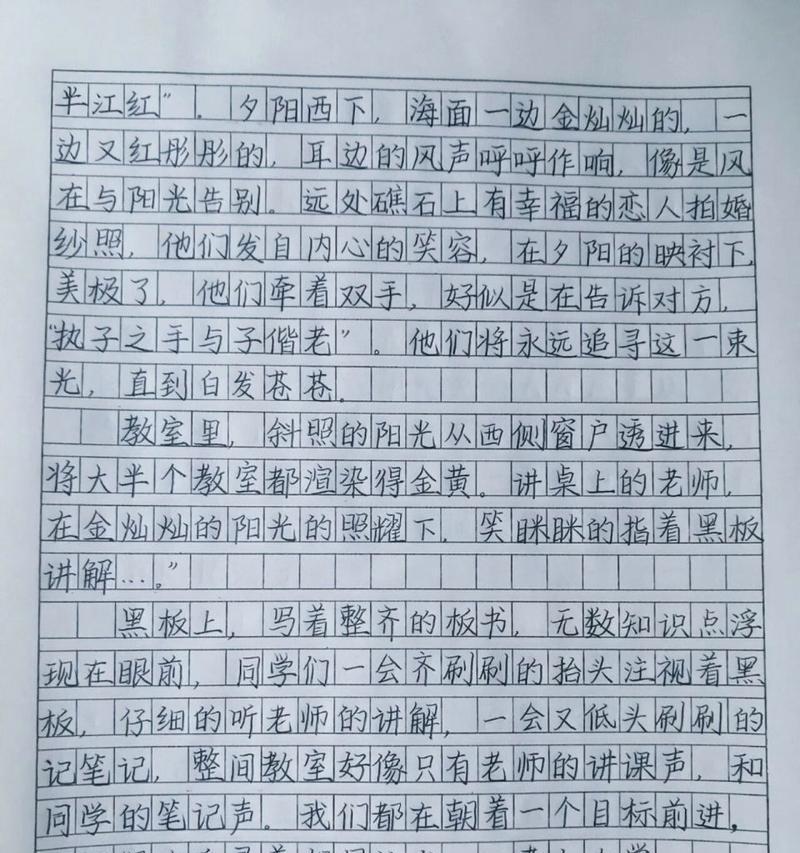 半江红”。夕阳西下，海面一边金灿灿的，一
边又红彤彤的，耳边的风声呼呼作响，像是风
在与阳光告别。远处礁石上有幸福的恋人拍婚
纱照，他们发自内心的笑容，在夕阳的映衬下，
美极了，他们牵着双手，好似是在告诉对方，
“执子之手与子偕老”。他们将永远追寻这一束
光，直到白发苍苍。
教室里，斜照的阳光从西侧窗户透进来，
将大半个教室都渲染得金黄。讲桌上的老师，
在金灿灿的阳光的照耀下，笑眯眯的指着黑板
讲解…。”
黑板上，写着整齐的板书，无数知识点浮
现在眼前，同学们一会齐刷刷的抬头注视着黑
板，仔细的听老师的讲解，一会又低头刷刷的
记笔记，整间教室好像只有老师的讲课声，和
同学的笔记声。我们都在朝着一个目标前进，